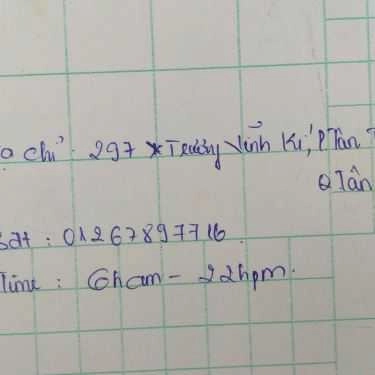 chỉ : 297 Trương Vĩnh Kí, P Tân
Q Tân
Sđt : 01267897716.
Time : 6h am - 22h pm.